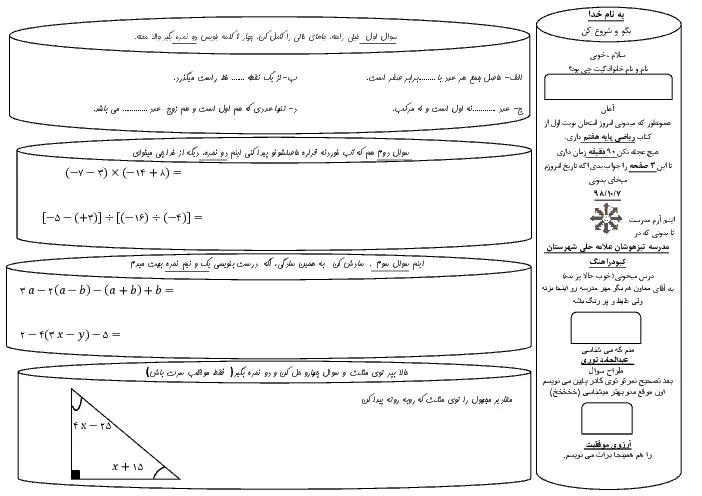 به نام خدا
بگو و شروع کن
سلام ، خوبی
نام و نام خانوادگیت چی بود؟
آهان
همونطور که میدونی امروز امتحان نوبت اول از
کتاب ریاضی پایه هفتم داری.
هیچ عجله نکن ۹۰ دقیقه زمان داری
تا این ۳ صفحه را جواب بدی!اگه تاریخ امروزم
میخای بدونی
۹۸/۱۰/۷
اینم آرم مدرست
تا بدونی که در
مدرسه تیزهوشان علامه حلی شهرستان
کبودراهنگ
درس میخونی(خوب حالا پز نده)
به آقای معاون هم بگو مهر مدرسه رو اینجا بزنه
ولی غلیظ و پر رنگ باشه
منم که می شناسی
عبدالحامد نوری
طراح سوال
بعد تصحیح نمرتو توی کادر پایین می نویسم
اون موقع منو بهتر میشناسی (خخخخخ)
آرزوی موفقیت
را هم همینجا برات می نویسم.
سوال اول خیلی راحته. جاهای خالی را کامل کن. چهار تا کلمه بنویس دو نمره بگیر والا مفته.
الف- حاصل جمع هر عدد با ........برابر صفر است.
ب- از یک نقطه ...... خط راست میگذرد.
ج- عدد ...........نه اول است و نه مرکب.
د- تنها عددی که هم اول است و هم زوج عدد ............ می باشد.
سوال دوم هم که
دو نمره، دیگه از خدا چی میخوای
(−۷ − ۳) × (−۱۴ + ۸) =
[−۵ − (+۳)] ÷ [(−۱۶) ÷ (−۴)] =
اینم سوال سوم . سادش کن به همین سادگی. اگه درست بنویسی یک و نیم نمره بهت میدم
۳ a − ۲(a − b) − (a + b) + b =
۲ − ۴(۳ x − y) − ۵ =
حالا بپر توی مثلث و سوال چهارو حل کن و دو نمره بگیر( فقط مواظب سرت باش)
مقادیر مجهول را توی مثلث که روبه روته پیدا کن
۴ x − ۲۵
x + ۱۵